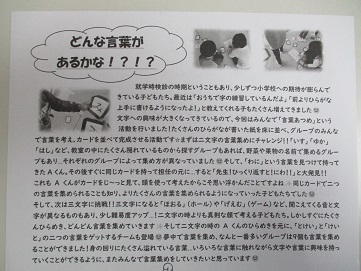 どんな言葉が
あるかな！？！？
就学時検診の時期ということもあり、少しずつ小学校への期待が膨らんで
きている子どもたち。最近は「おうちで字の練習しているんだよ」「前よりひらがな
上手に書けるようになったよ！」と教えてくれる子もたくさん増えてきました
文字への興味が大きくなってきているので、今回はみんなで「言葉あつめ」という
活動を行いました！たくさんのひらがなが書いた紙を床に並べ、グループのみんな
で言葉を考え、カードを並べて完成させる活動です☆まずは二文字の言葉集めにチャレンジ！！「いす」「ゆか」
「はし」など、教室の中にたくさん隠れているものから探すグループもあれば、野菜や果物の名前で集めるグルー
プもあり…それぞれのグループによって集め方が異なっていました そして、「わに」という言葉を見つけて持って
きたAくん。その後すぐに同じカードを持って担任の元に…すると「先生！ひっくり返すと！にわ！！」と大発見！！
これも Aくんがカードをじーっと見て、頭を使って考えたからこそ思い浮かんだことですよね☆同じカードで二つ
の言葉を集められることを知り、より一層たくさんの言葉を集められるようになっていった子どもたちでした
そして、次は三文字に挑戦！！三文字になると「ほおる」（ホール）や「げえむ」（ゲーム）など、聞こえてくる音と文
字が異なるものもあり、少し難易度アップ…！二文字の時よりも真剣な顔で考える子どもたち。しかしすぐにたくさ
んひらめき、どんどん言葉を集めていきます そして二文字の時の Aくんのひらめきを元に、「とけい」と「けい
と」の二つの言葉をゲットするチームも登場 夢中で言葉を集め、なんと一番多いグループは9個も言葉を集める
ことができました！身の回りにたくさん溢れている言葉…いろいろな言葉に触れながら文字や言葉に興味を持っ
ていくことができるように、またみんなで言葉集めをしていきたいと思います